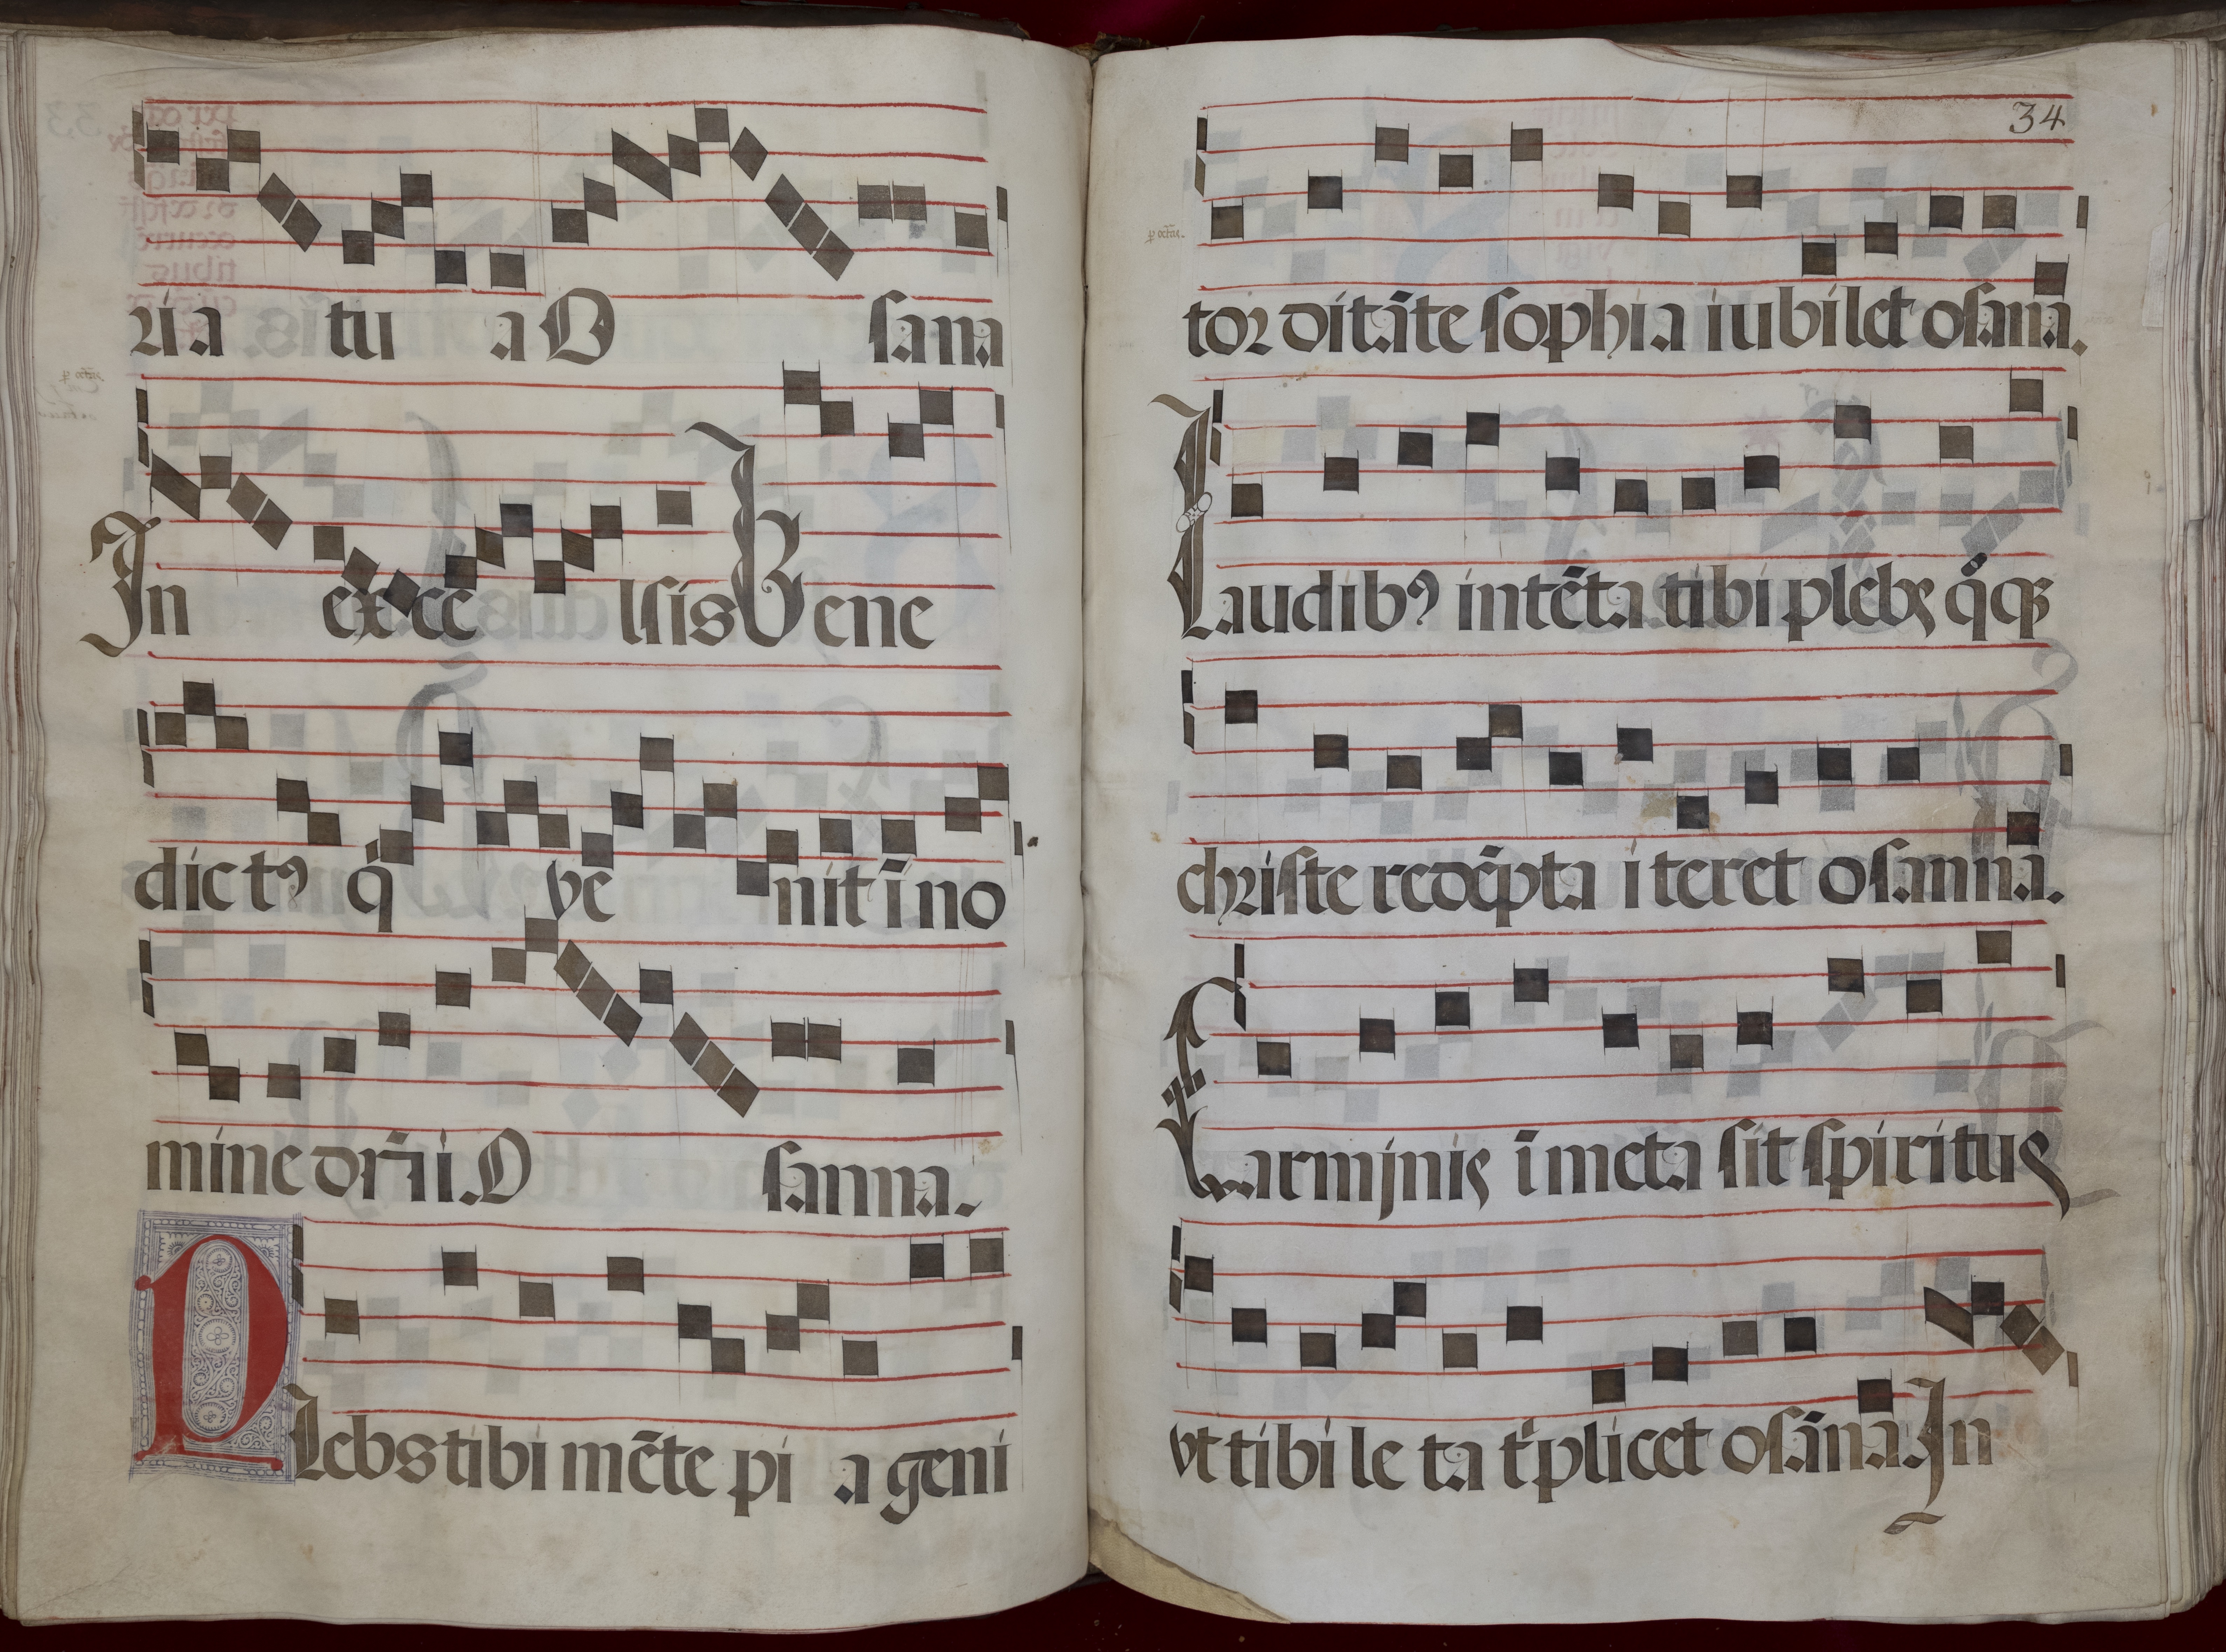 ria tu a O sana
In exce lsis Bene
dictꝰ q̈ ve nit ī no
mine dn̄i i. O sanna.
Plebs tibi mēte pi a geni
34
tor ditāte sophia iubilet osana.
Laudibꝰ intēta tibi plebs q̈qꝫ
christe redēpta iteret osanna.
Carminis īmeta sit spiritus
vt tibi le ta tͥplicet osāna. In